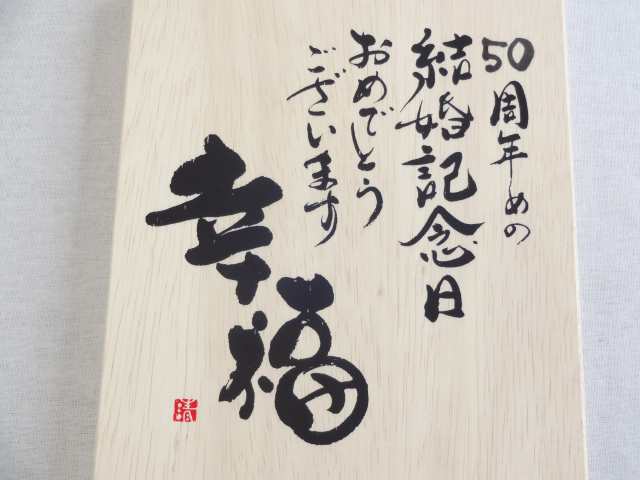 50周年めの
結婚記念日
おめでとう
ございます
幸福
清